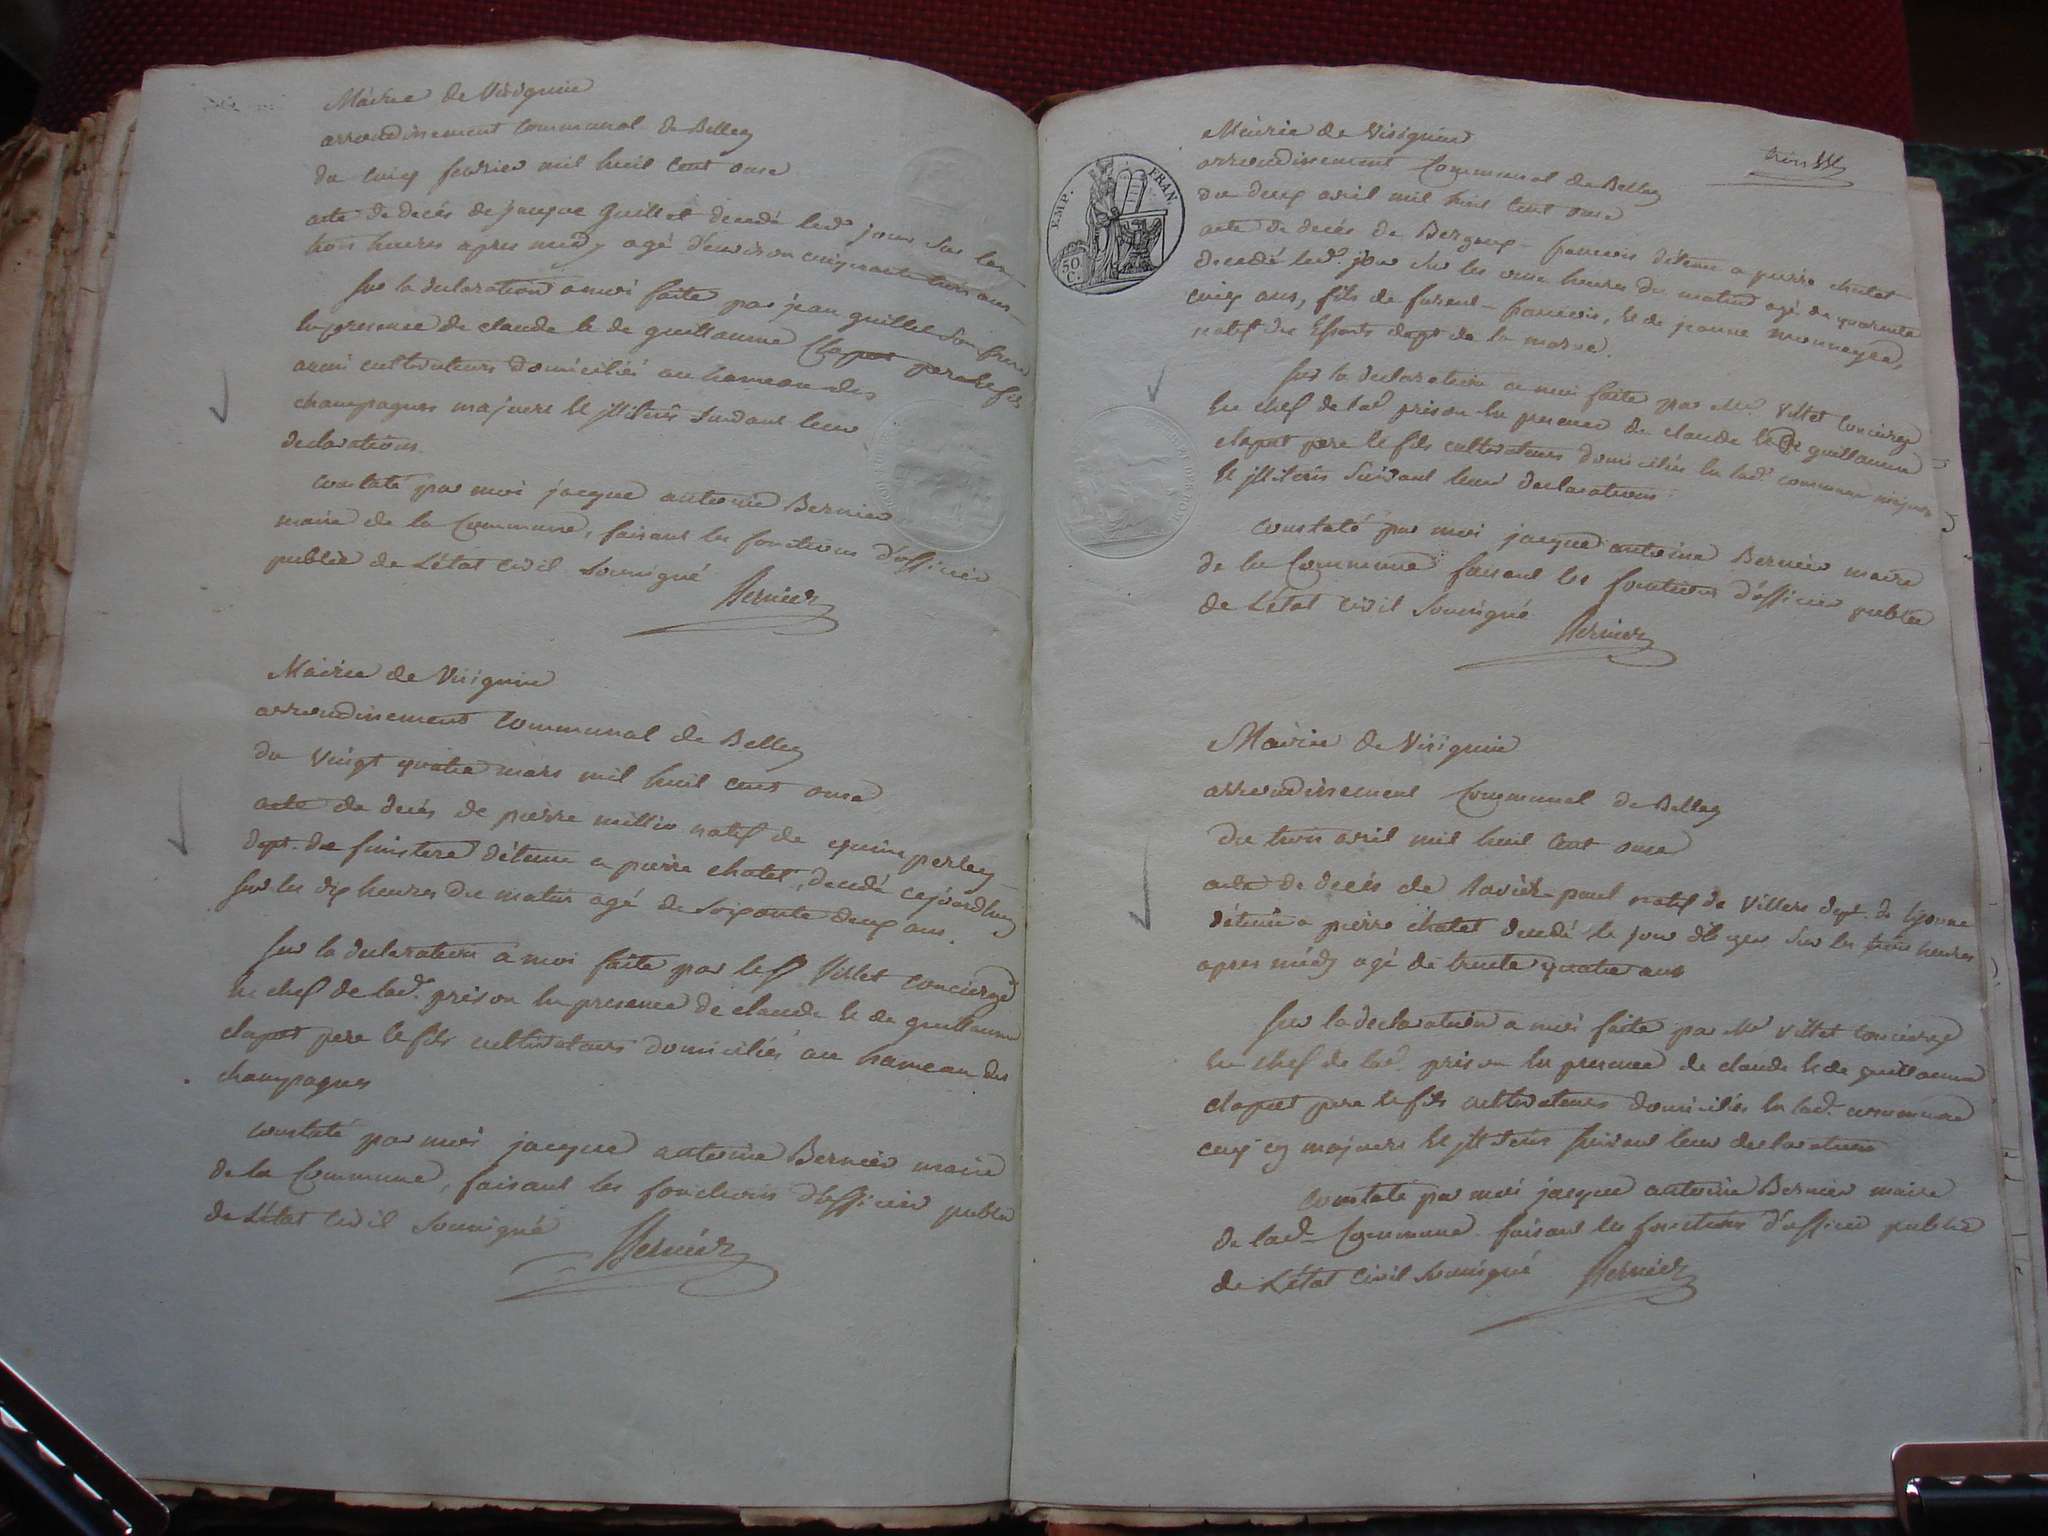 Mairie de Virignin
arrondissement Communal de Belley
du cinq fevrier mil huit cent onze
acte de decés de jacque guillet decedé led. jour sur les
trois heures apres midy agé d'environ cinquante trois ans
sur la declaration a moi faite par jean guillet son frere
en presence de claude et de guillaume Clapot pere et fils
aussi cultivateurs domiciliés au hameau des
champagnes majeurs et illiterés suivant leur
declarations.
constaté par moi jacque antoine Bernier
maire de la Commune, faisant les fonctions d'officier
public de L'état civil soussigné
Bernier
Mairie de Virignin
arrondissement Communal de Belley
du vingt quatre mars mil huit cent onze
acte de decés de pierre millio natif de quimperley
dept. du finistere détenu a pierre chatel, decedé cejourdhuy
sur les dix heures du matin agé de soixante deux ans.
sur la declaration a moi faite par le Sr. Villet concierge
en chef de lad. prison en presence de claude et de guillaume
clapot pere et fils cultivateurs domiciliés au hameau des
champagnes
constaté par moi jacque antoine Bernier maire
de la Commune, faisant les fonctions d'officier public
de L'état civil soussigné
Bernier
trois
EMP. FRAN.
50 C.
Mairie de Virignin
arrondissement Communal de Belley
du deux avril mil huit cent onze
acte de decés de francois détenu a pierre chatel
decedé led. jour sur les onze heures du matin agé de quarante
cinq ans, fils de francois, et de jeanne
natif des Essarts dept de la marne.
sur la declaration a moi faite par Mr. Villet concierge
en chef de lad. prison en presence de claude et de guillaume
clapot pere et fils cultivateurs domiciliés en lad. commune majeurs
et illiterés suivant leurs declarations.
constaté par moi jacque antoine Bernier maire
de la Commune faisant les fonctions d'officier public
de L'état civil soussigné
Bernier
Mairie de Virignin
arrondissement Communal de Belley
du trois avril mil huit cent onze
acte de decés de paul natif de Villers dept. de lyonne
détenu a pierre chatel decedé le jour d'hyer sur les trois heures
apres midy agé de trente quatre ans
sur la declaration a moi faite par Mr Villet concierge
en chef de lad. prison en presence de claude et de guillaume
clapot pere et fils cultivateurs domiciliés en lad. commune
ceux cy majeurs et illiterés suivant leur declaration
constaté par moi jacque antoine Bernier maire
de lad. Commune faisant les fonctions d'officier public
de L'état civil soussigné
Bernier